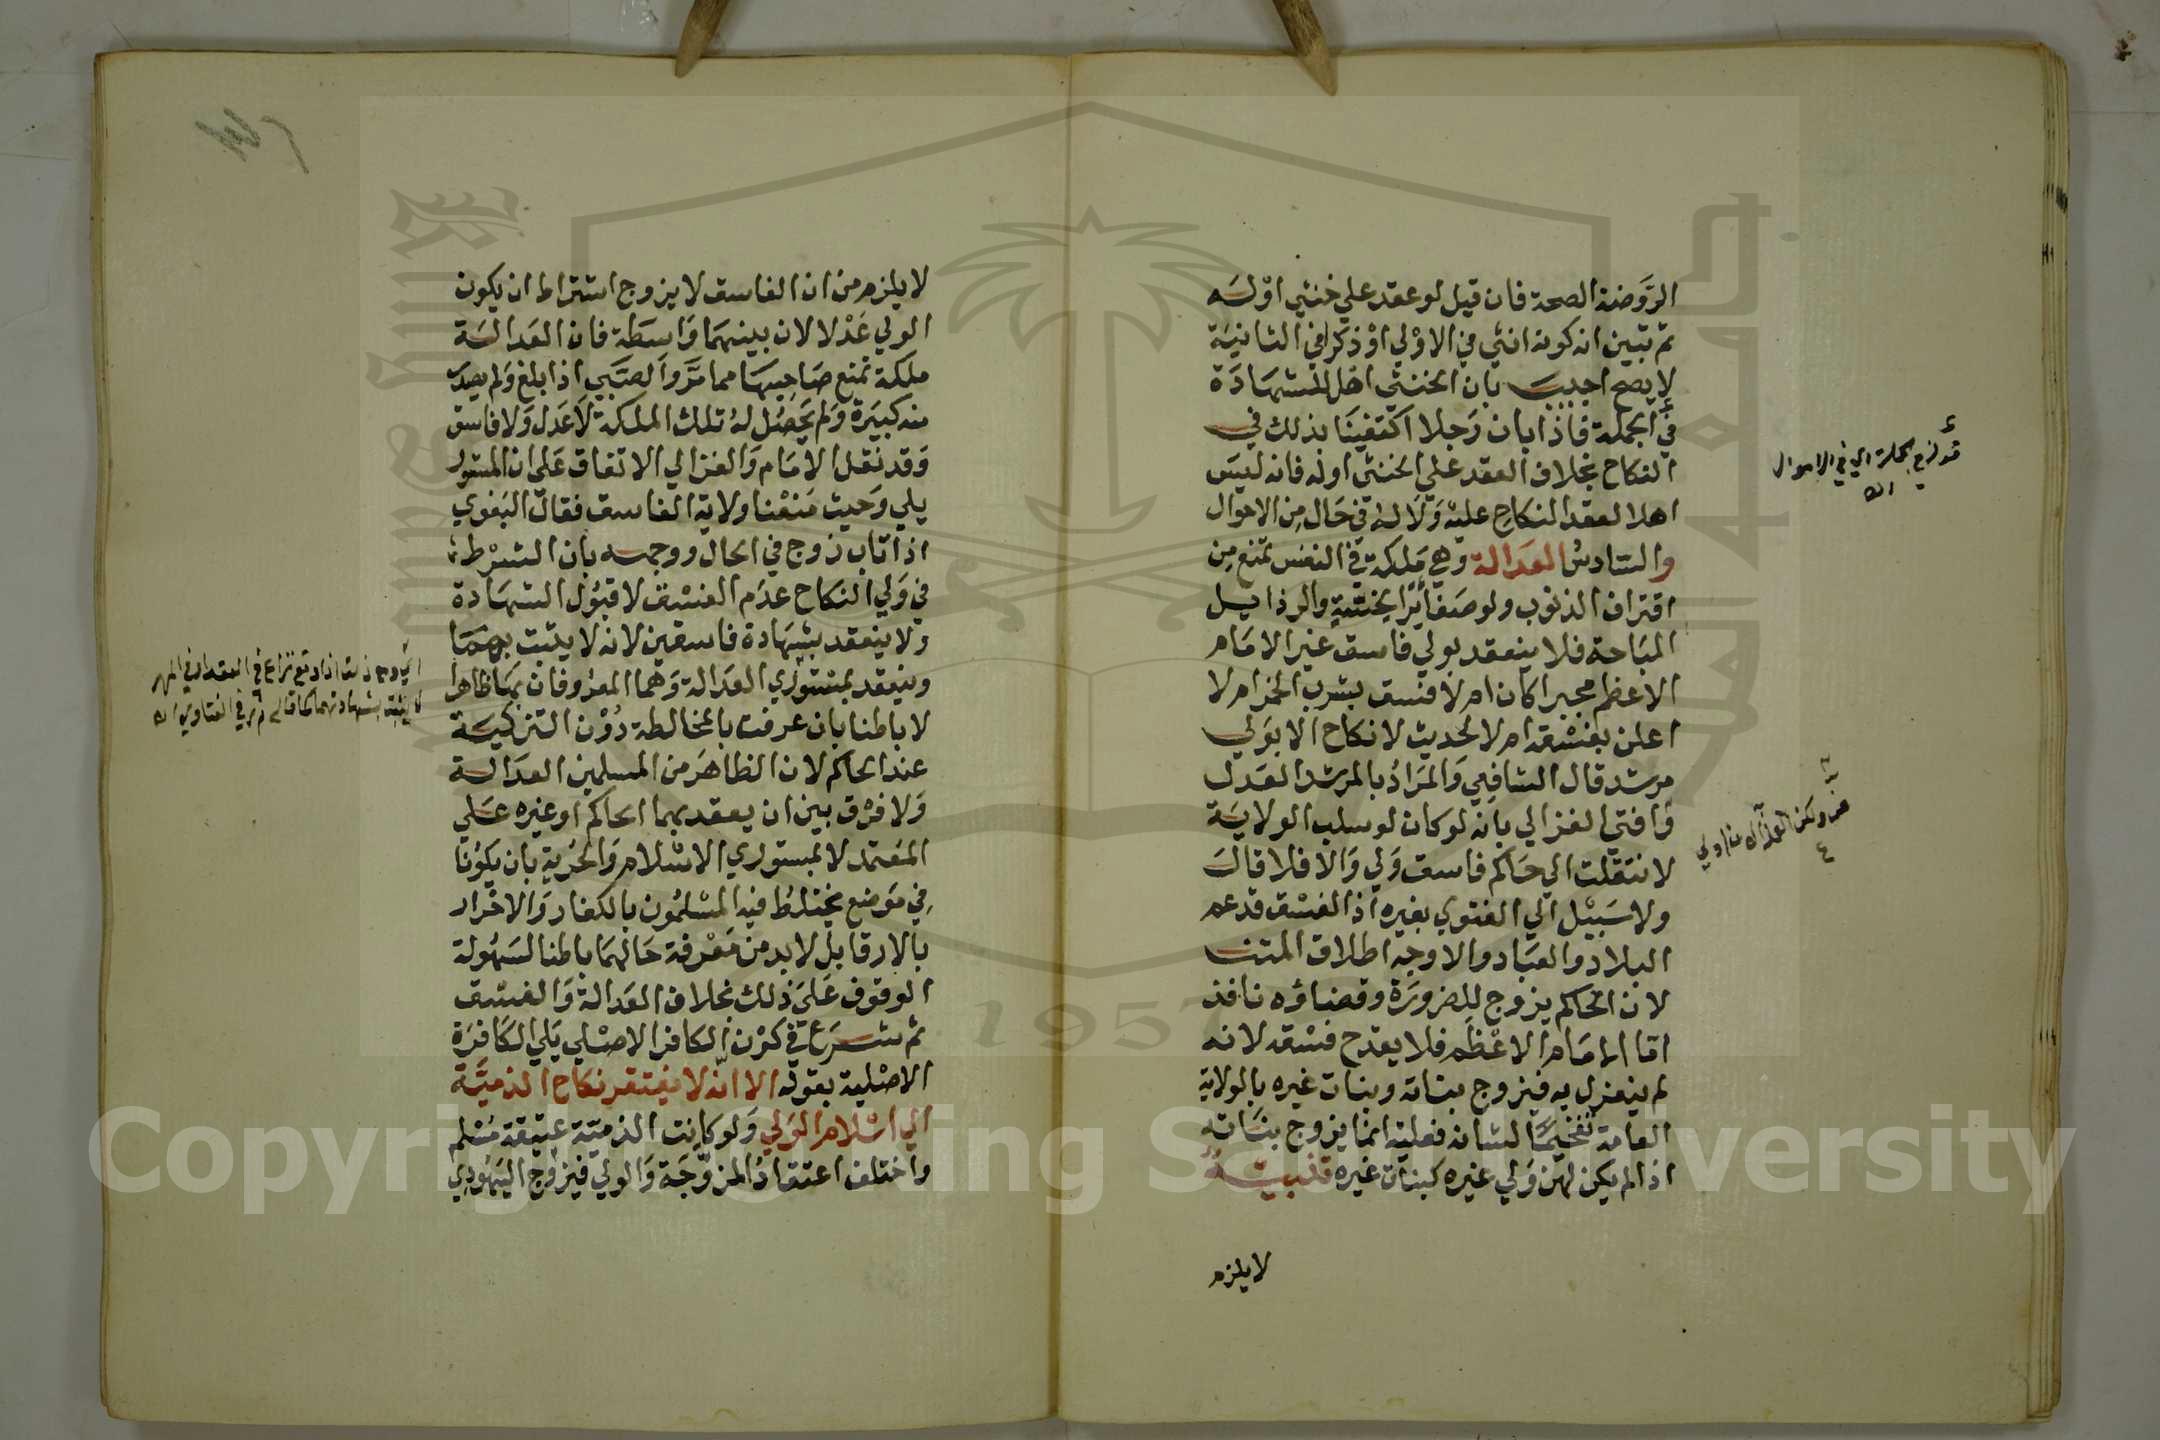 الرَّوضة الصحة فان قيل لو عقد علي خنثي اوْلَه
ثم تبين انه كونه انثي في الاوْلي اوْ ذكرا في الثانيَة
لا يصح اجيب بان الخنثي اهل للشهَادَة
في الجملة فاذا بان رَجلا اكتفينَا بذلك في
النكاح بخلاف العقد علي الخنثي اوله فانه ليسَ
اهلا لعقد النكاح عليْه وَلَا له في حَال من الاحوال
والسَّادسُ العدَالة وهي مَلكة في النفس تمنع من
اقتراف الذنوب ولو صغائر الخسّة والرذايل
المبَاحة فلا ينعقد بولي فاسق غير الامَام
الاعظم مجبرا كان ام لا فسق بشرب الخمر ام لا
اعلن بفسْقه ام لا لحديث لا نكاح الا بوَلي
مرشد قال الشافعِي وَالمرَادُ بالمرشد العَدل
وَافتي الغزالي بانه لو كان لو سلب الولايَة
لانتقلت الي حَاكم فاسق وَلي وَالا فلا قالَ
ولا سَبيْل الي الفتوي بغيره اذ الفسْق قد عم
البلاد والعبَاد والاوجه اطلاق المتن
لان الحاكم يزوج للضرورَة وقضاؤه نافذ
امّا الامَام الاعْظم فلا يقدح فسْقه لانه
لم ينعزل به فيزوج بناته وبنات غيره بالولاية
العامة تفخيمًا لشانه فعليه انما يزوج بنَاته
اذا لم يكن لهن وَلي غيره كبنات غيره تنبيـه
لا يلزم
قوله في الجملة اي في الاموال
اه
لا يلزم من ان الفاسق لا يزوج اشتراط ان يكون
الولي عَدْلا لان بينهمَا وَاسطَة فان العَدالَة
ملكة تمنع صَاحِبهَا مما مرَّ وَالصّبَي اذا بلغ وَلم يصدر
منه كبيَرة وَلم يَحصُل لهُ تلك الملكة لَا عَدل وَلا فاسق
وَقد نقل الامَام وَالغزالي الاتفاق عَلى ان المستور
يلي وَحيث مَنعْنا ولاية الفاسق فقال البَغوي
اذا تاب زوج في الحال ووجهه بان الشرْط
في وَلي النكاح عدَم الفسْق لا قبُول الشهَادة
وَلا ينعقد بشهَادة فاسقين لانه لا يثبت بهمَا
وينعقد بمستوْرَي العدَالة وَهما المعرُوفان بهَا ظاهرًا
لا باطنا بان عرفت بالمخالطة دُوْن التزكيَة
عند الحاكم لان الظاهرَ من المسلمين العدَالة
وَلا فرْق بين ان يعقد بهما الحاكم او غيره عَلي
المعتمد لا بمستوري الاسْلام وَالحُرية بان يكونَا
في مَوضع يختلطُ فيه المسْلمُون بالكفار وَالاحْرار
بالارقا بل لا بد من مَعْرفة حَالهمَا باطنا لسَهُولة
الوقوف عَلى ذلك بخلاف العَدالة وَالفسْق
ثم شرَع في كوْن الكافر الاصْلي يَلي الكَافرَة
الاصْلية بقوله الا انّه لا يفتقر نكاح الذميَّة
الي اسْلام الوَلي وَلو كانت الذميّة عَتيقة مُسْلم
وَاختلف اعتقادُ المزوَّجَة وَالولي فيزوّج اليَهُودِي
اي وجه ذلك اذا وقع نزاع في العقد او في المهر
لا يثبت بشهادتهما كما قاله م ر في الفتاوي اه